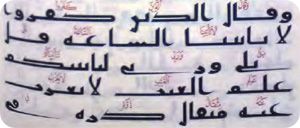 وقال الذين كفروا
لا تاتينا الساعة قل
بلى وربي لتاتينكم
علم الغيب لا يعزب
عنه مثقال ذرة في